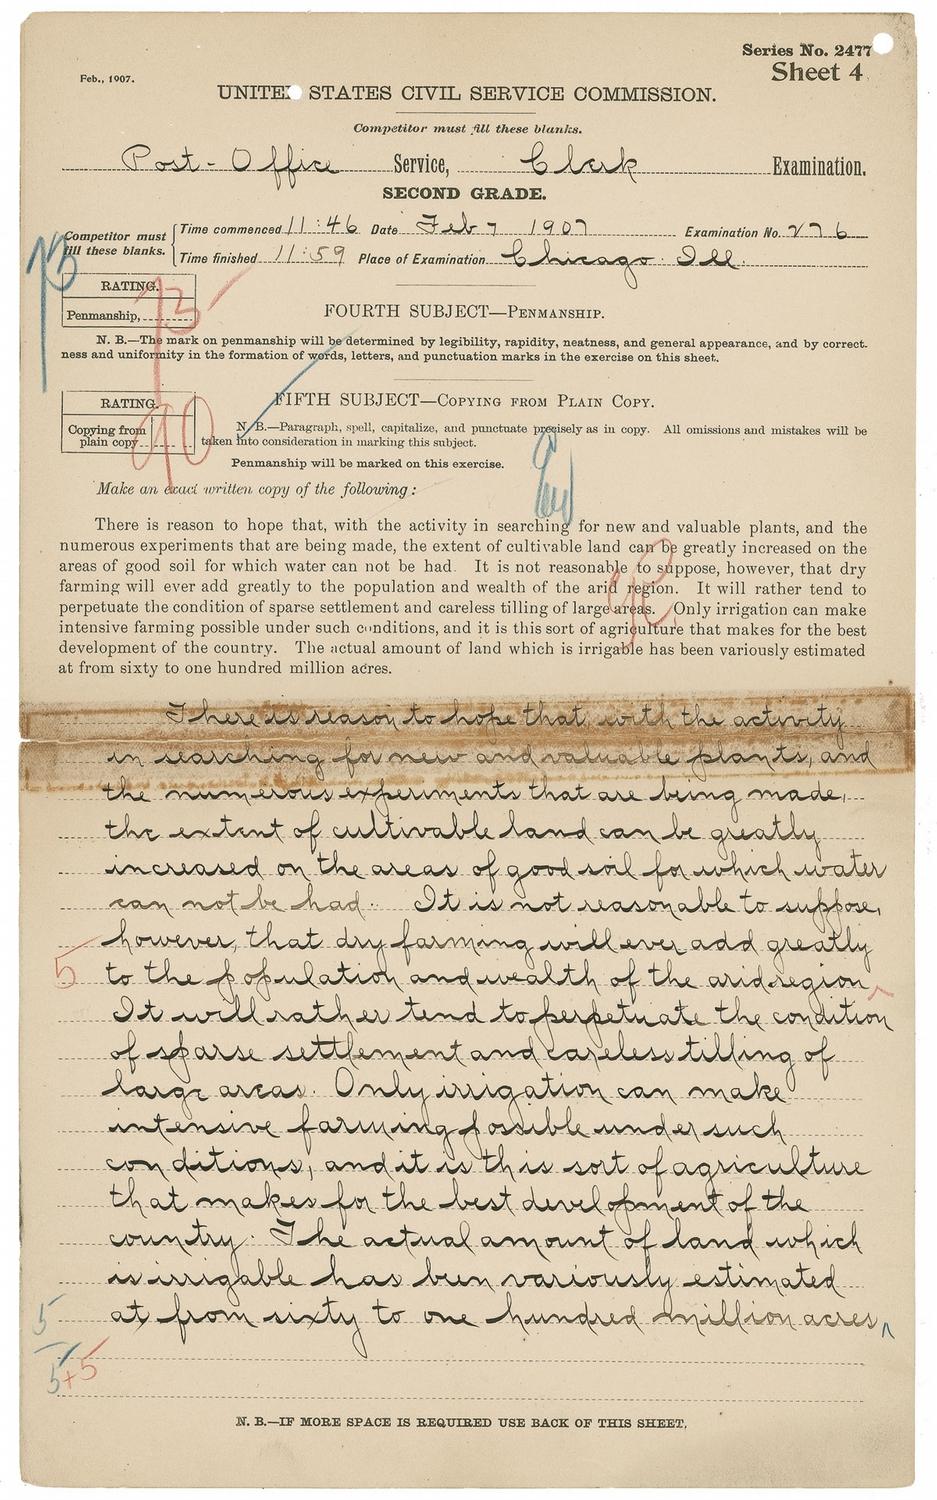 Series No. 2477
Sheet 4
Feb., 1907.
UNITED STATES CIVIL SERVICE COMMISSION.
Competitor must fill these blanks.
Post-Office Service, Clerk Examination.
SECOND GRADE.
Competitor must fill these blanks.
Time commenced 11:46 Date Feb 7 1907 Examination No. 276
Time finished 11:59 Place of Examination Chicago Ill.
RATING.
Penmanship, 75
75
FOURTH SUBJECT—PENMANSHIP.
N. B.—The mark on penmanship will be determined by legibility, rapidity, neatness, and general appearance, and by correct-
ness and uniformity in the formation of words, letters, and punctuation marks in the exercise on this sheet.
RATING.
Copying from plain copy 90
FIFTH SUBJECT—COPYING FROM PLAIN COPY.
N. B.—Paragraph, spell, capitalize, and punctuate precisely as in copy. All omissions and mistakes will be
taken into consideration in marking this subject.
Penmanship will be marked on this exercise.
Make an exact written copy of the following:
There is reason to hope that, with the activity in searching for new and valuable plants, and the
numerous experiments that are being made, the extent of cultivable land can be greatly increased on the
areas of good soil for which water can not be had. It is not reasonable to suppose, however, that dry
farming will ever add greatly to the population and wealth of the arid region. It will rather tend to
perpetuate the condition of sparse settlement and careless tilling of large areas. Only irrigation can make
intensive farming possible under such conditions, and it is this sort of agriculture that makes for the best
development of the country. The actual amount of land which is irrigable has been variously estimated
at from sixty to one hundred million acres.
There is reason to hope that, with the activity
in searching for new and valuable plants, and
the numerous experiments that are being made,
the extent of cultivable land can be greatly
increased on the areas of good soil for which water
can not be had. It is not reasonable to suppose,
however, that dry farming will ever add greatly
5 to the population and wealth of the arid region
It will rather tend to perpetuate the condition
of sparse settlement and careless tilling of
large areas. Only irrigation can make
intensive farming possible under such
conditions, and it is this sort of agriculture
that makes for the best development of the
country. The actual amount of land which
is irrigable has been variously estimated
5 at from sixty to one hundred million acres
5+5
N. B.—IF MORE SPACE IS REQUIRED USE BACK OF THIS SHEET.